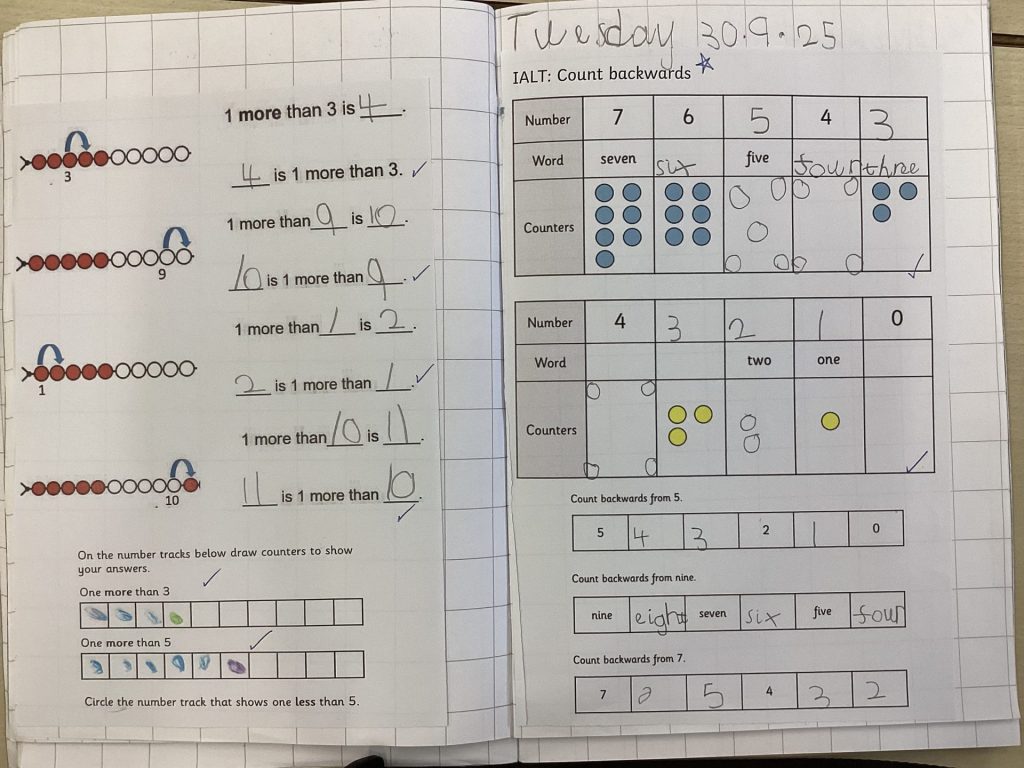 1 more than 3 is 4.
3
4 is 1 more than 3.
1 more than 9 is 10.
9
10 is 1 more than 9.
1 more than 1 is 2.
1
2 is 1 more than 1.
1 more than 10 is 11.
10
11 is 1 more than 10.
On the number tracks below draw counters to show
your answers.
One more than 3
One more than 5
Circle the number track that shows one less than 5.
Tuesday 30.9.25
IALT: Count backwards
Number 7 6 5 4 3
Word seven six five four three
Counters
Number 4 3 2 1 0
Word two one
Counters
Count backwards from 5.
5 4 3 2 1 0
Count backwards from nine.
nine eight seven six five four
Count backwards from 7.
7 5 4 3 2